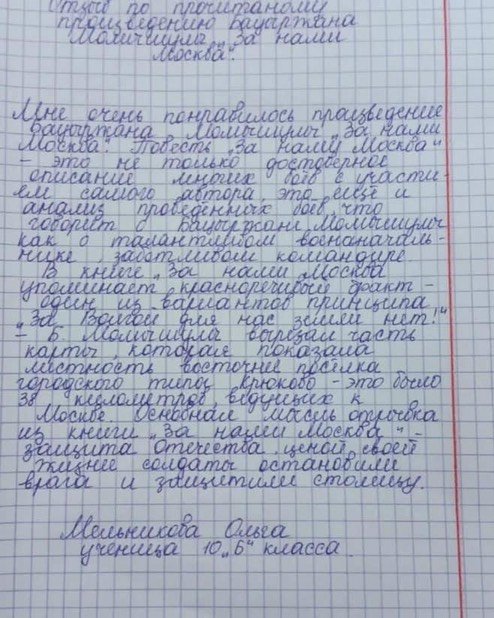 Отзыв по прочитаному
произведению Бауыржана
Момышулы „За нами
Москва".
Мне очень понравилось произведение
Бауыржана Момышулы „За нами
Москва". Повесть „За нами Москва"
- это не только достоверное
описание многих боёв с участи-
ем самого автора это ещё и
анализ проведённых боёв, что
говорит о Бауыржан Момышулы
как о талантливом военачаль-
нике, заботливом командире.
В книге „За нами Москва
упоминает красноречивый факт -
один из вариантов принципа
„За Волгой для нас земли нет!"
- Б. Момышулы вырезал часть
карты, которая показала
местность восточне посёлка
городского типа Крюково - это было
38 километров, ведущих к
Москве. Основная мысль отрывка
из книги „За нами Москва" -
защита Отечества, ценой своей
жизни солдаты остановили
врага и защитили столицу.
Мельникова Ольга
ученица 10 „б" класса.